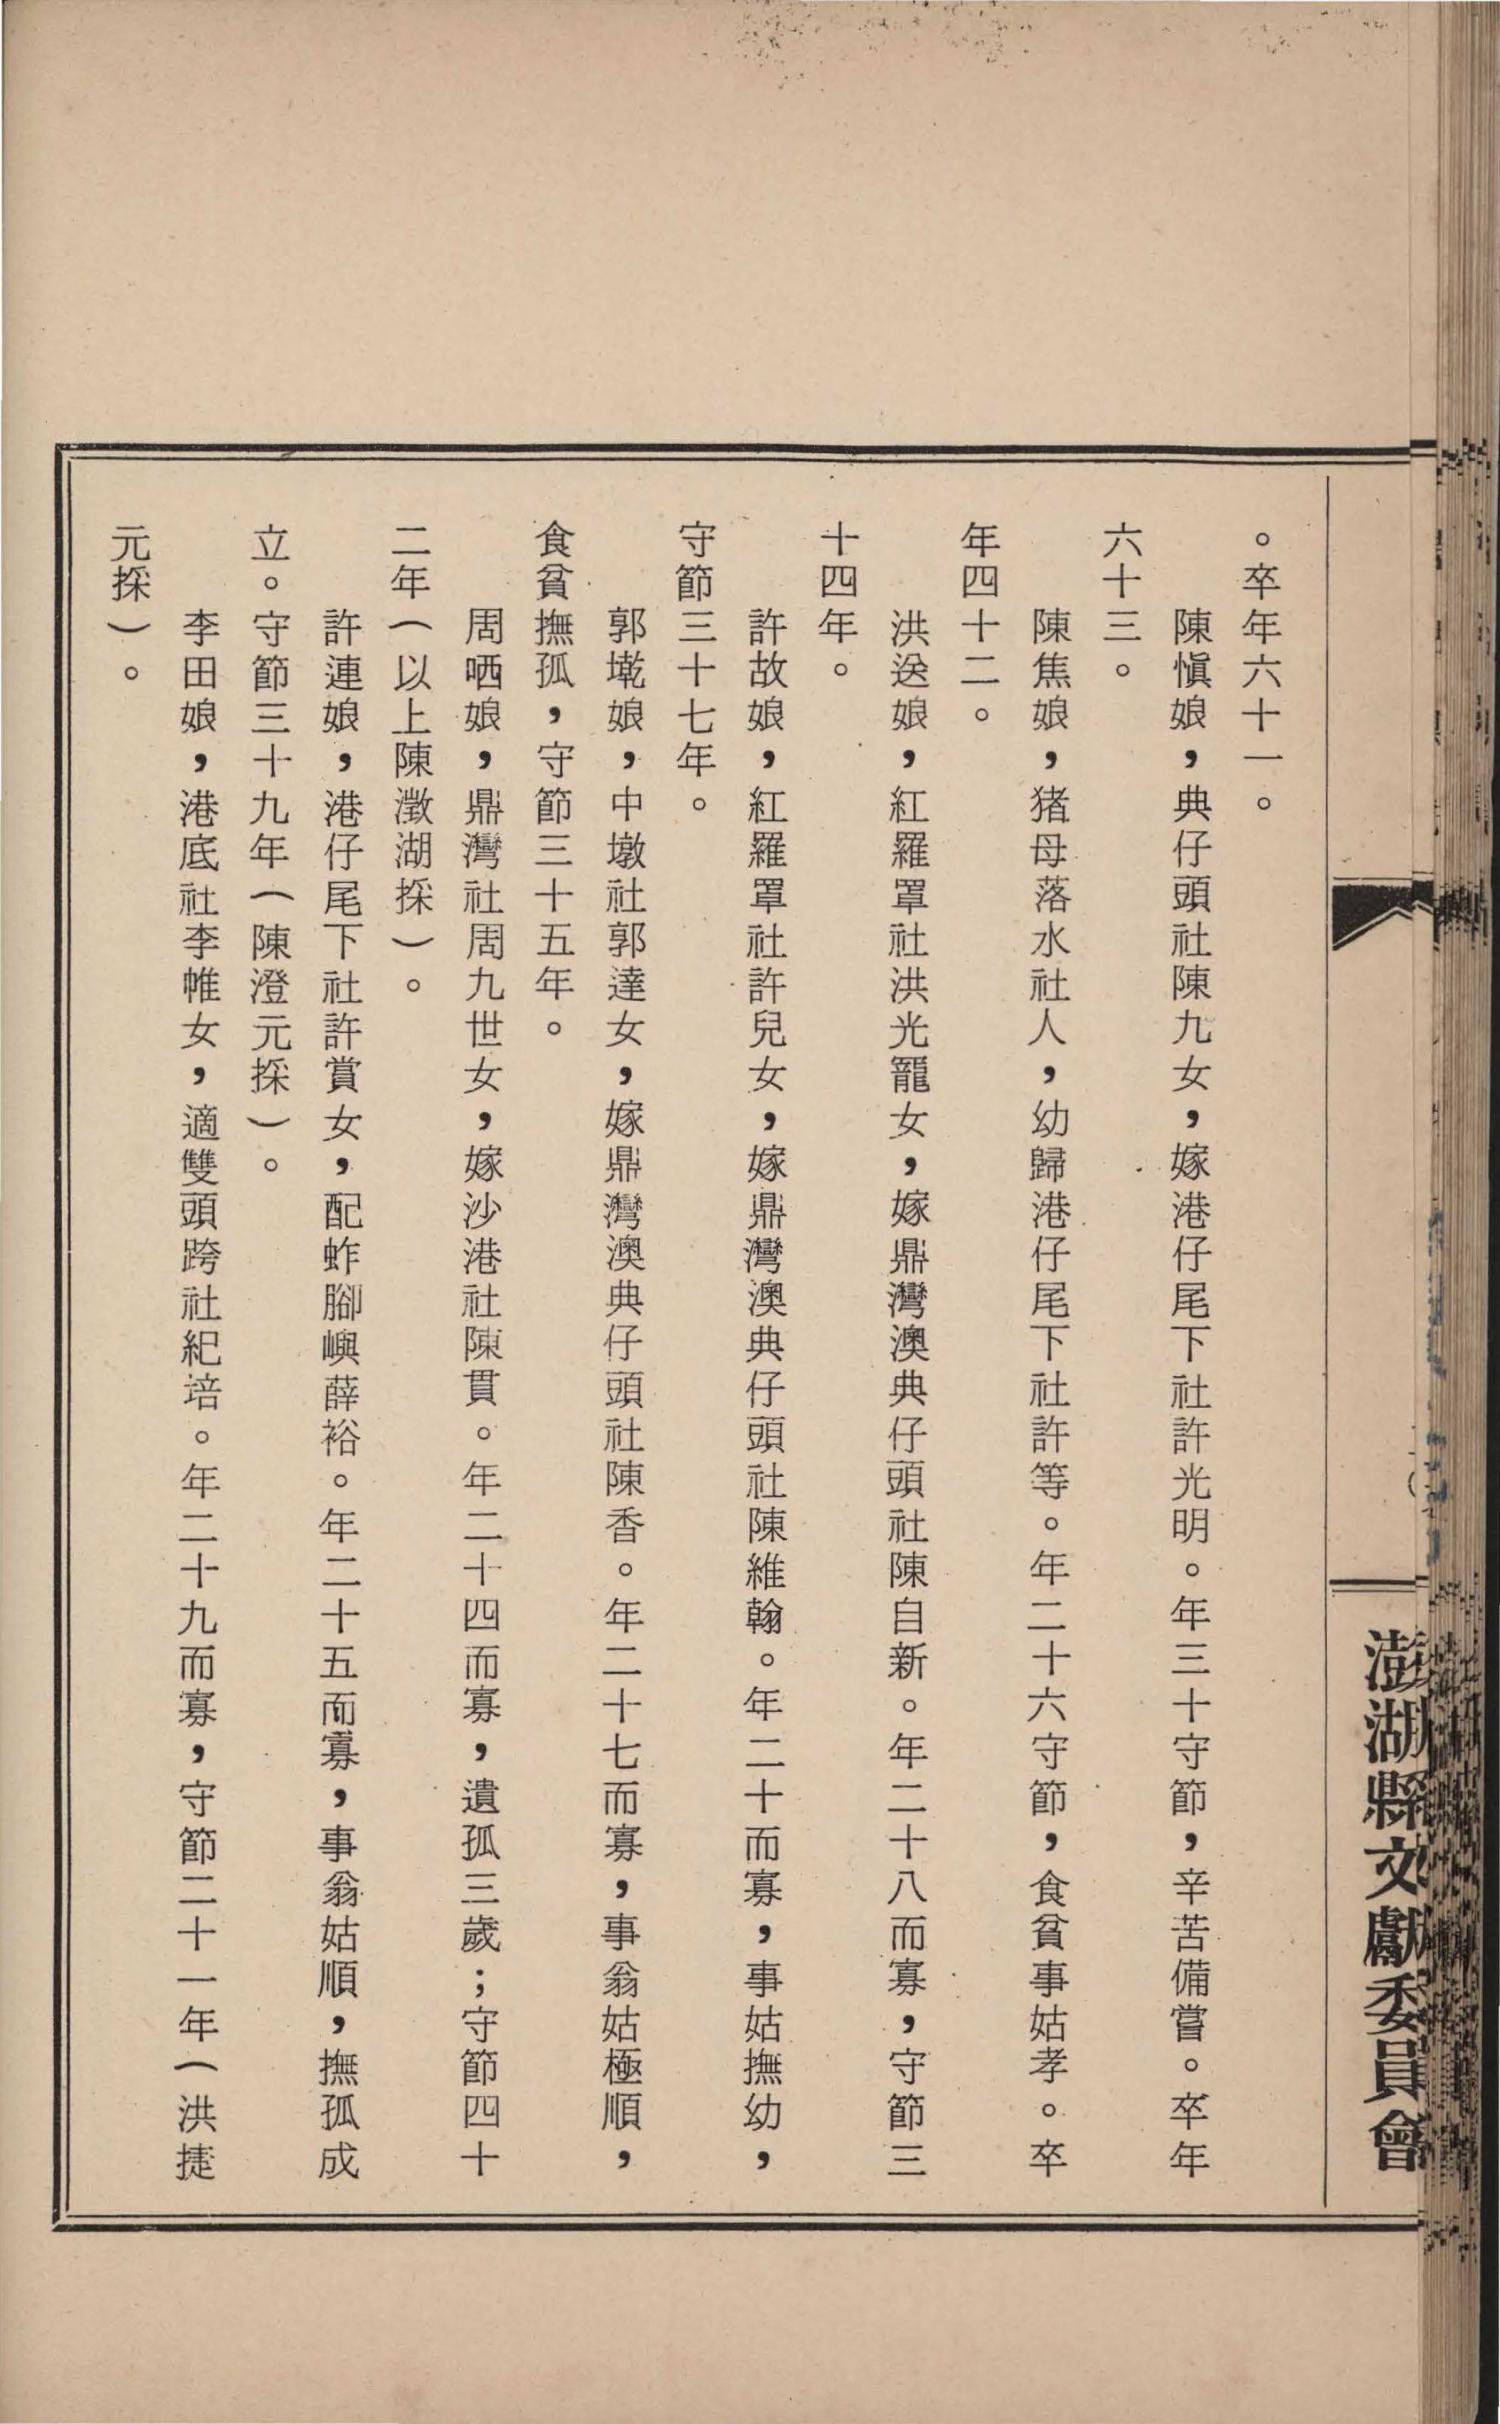 。卒年六十一。
陳愼娘，典仔頭社陳九女，嫁港仔尾下社許光明。年三十守節，辛苦備嘗。卒年
六十三。
陳焦娘，猪母落水社人，幼歸港仔尾下社許等。年二十六守節，食貧事姑孝。卒
年四十二。
洪送娘，紅羅罩社洪光寵女，嫁鼎灣澳典仔頭社陳自新。年二十八而寡，守節三
十四年。
許故娘，紅羅罩社許兒女，嫁鼎灣澳典仔頭社陳維翰。年二十而寡，事姑撫幼，
守節三十七年。
郭墘娘，中墩社郭達女，嫁鼎灣澳典仔頭社陳香。年二十七而寡，事翁姑極順，
食貧撫孤，守節三十五年。
周哂娘，鼎灣社周九世女，嫁沙港社陳貫。年二十四而寡，遺孤三歲；守節四十
二年（以上陳澂湖採）。
許連娘，港仔尾下社許賞女，配蚱腳嶼薛裕。年二十五而寡，事翁姑順，撫孤成
立。守節三十九年（陳澄元採）。
李田娘，港底社李帷女，適雙頭跨社紀培。年二十九而寡，守節二十一年（洪捷
元採）。
澎湖縣文獻委員會